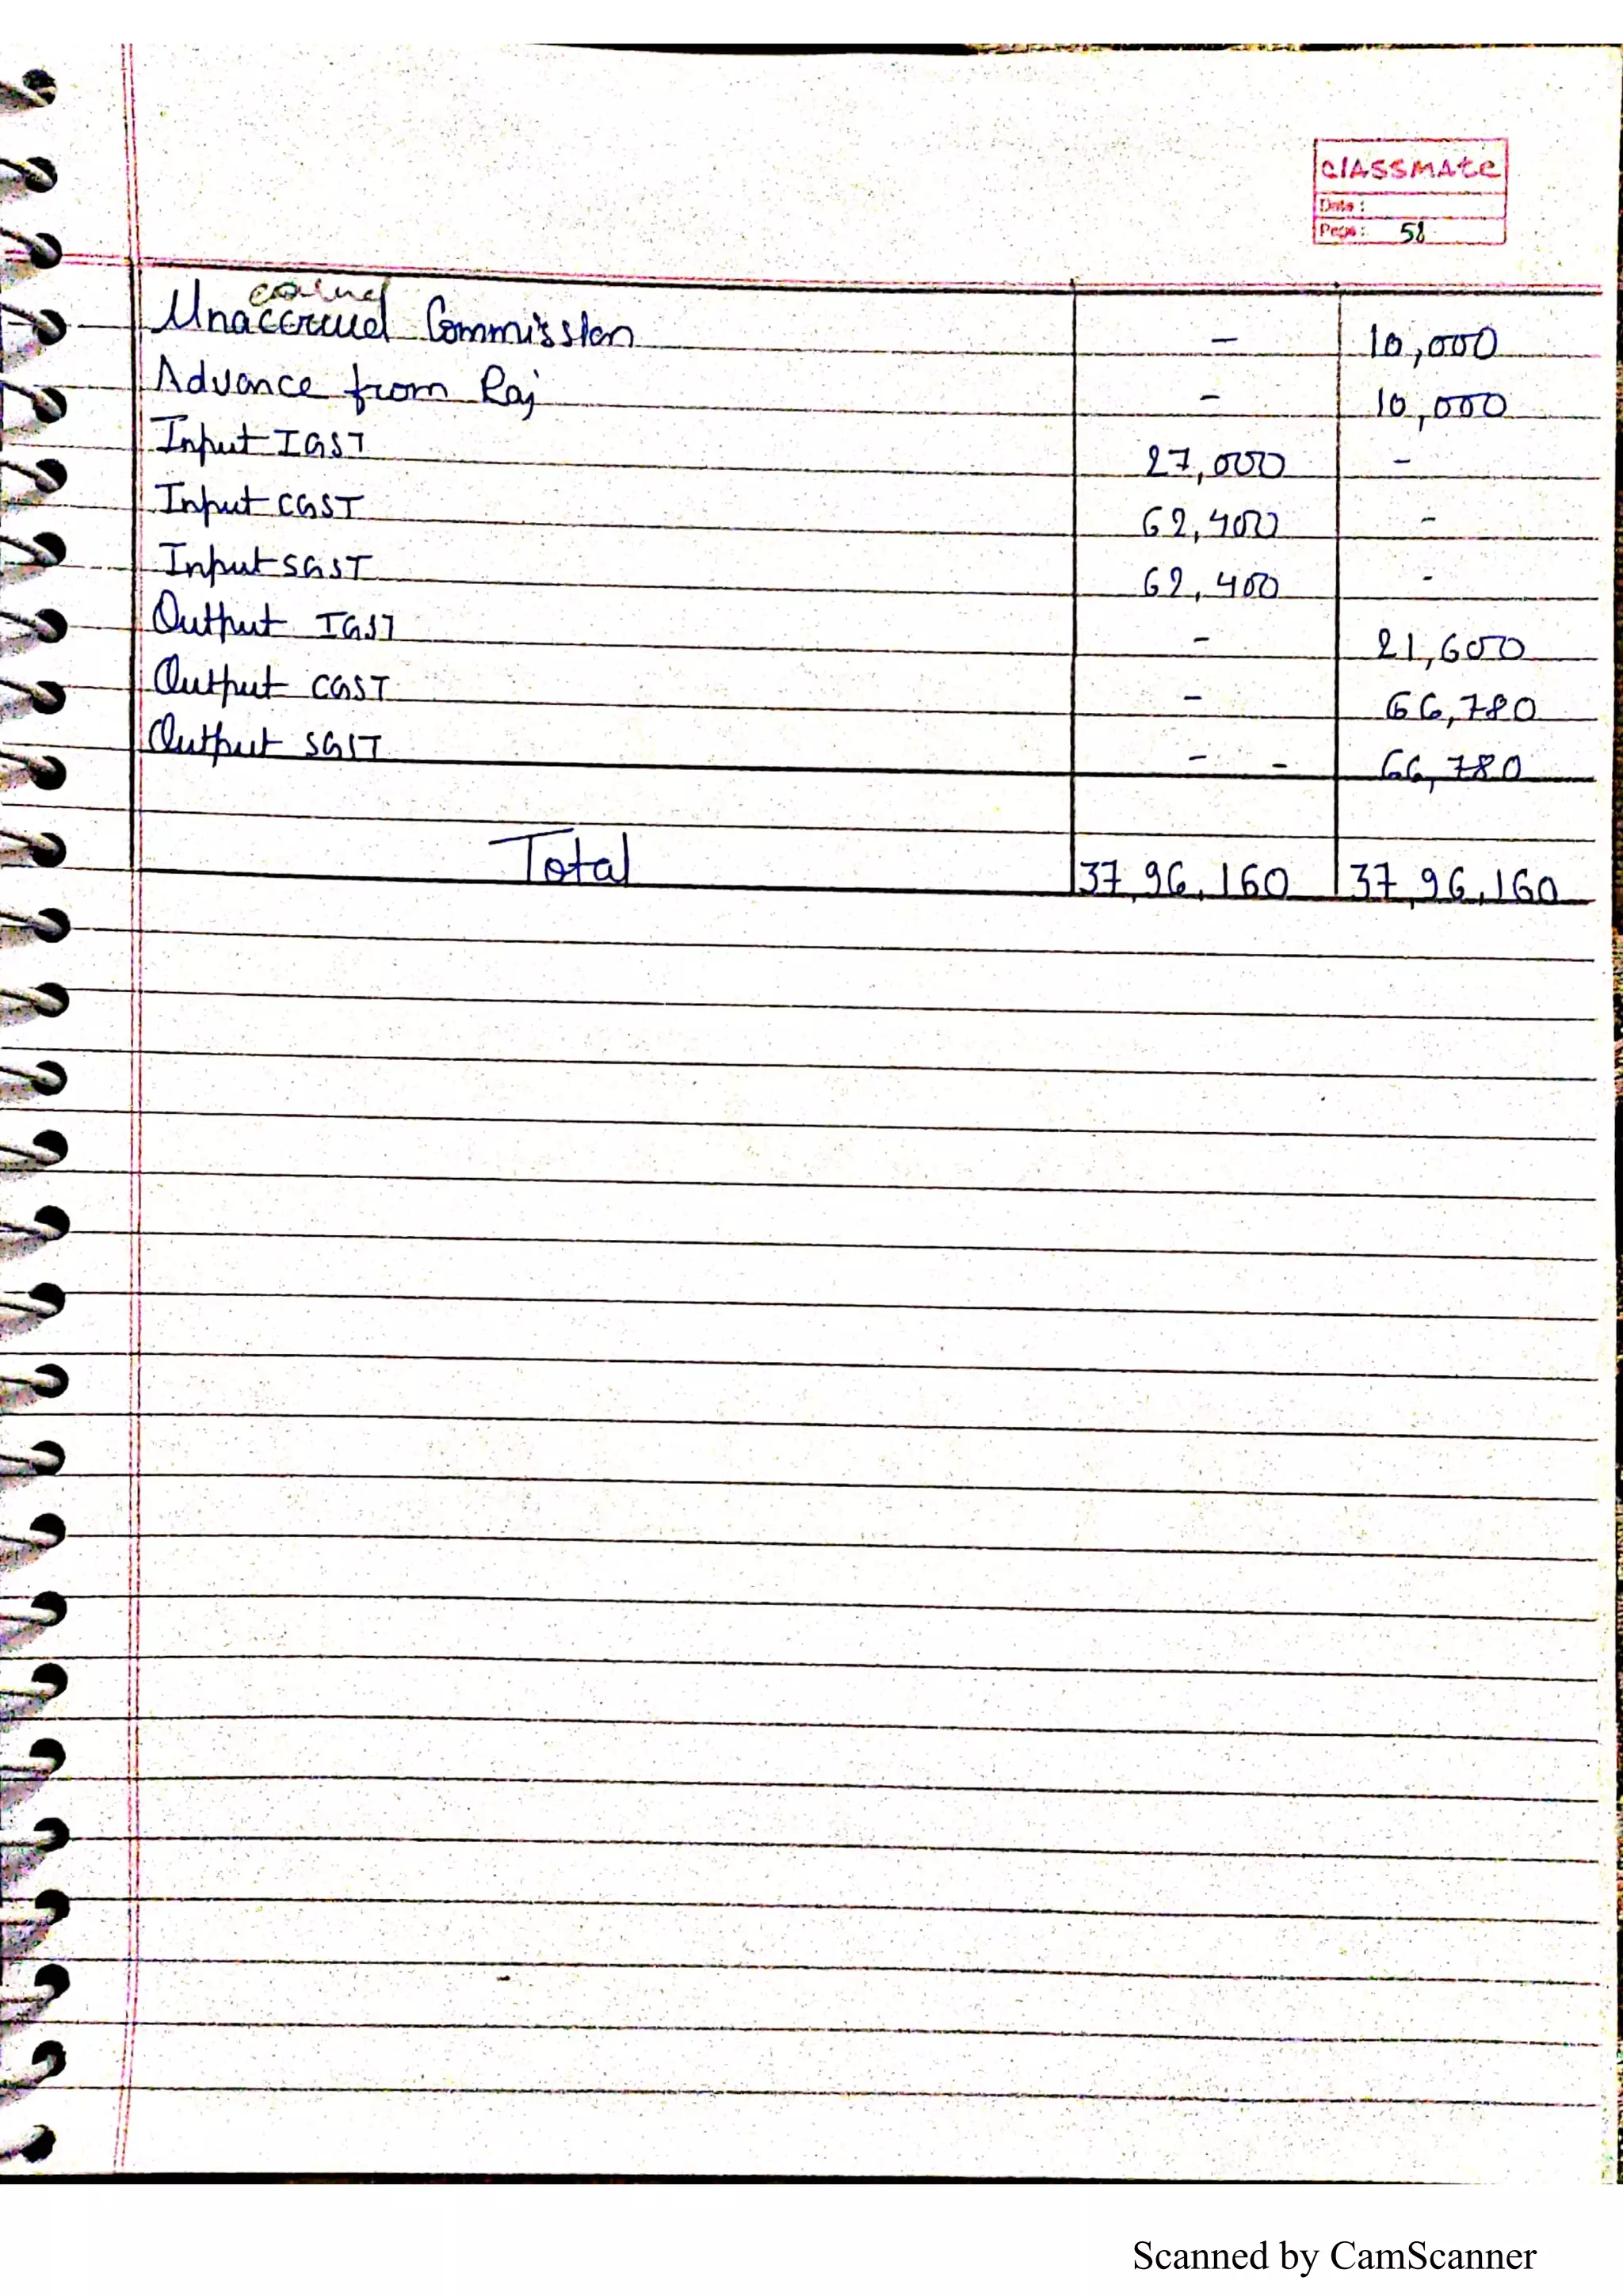 classmate
Date :
Page : 58
earned
Unaccrued Commission - 10,000
Advance from Raj - 10,000
Input IGST 27,000 -
Input CGST 62,400 -
Input SGST 62,400 -
Output IGST - 21,600
Output CGST - 66,780
Output SGST - - 66,780
Total 37,96,160 37,96,160
Scanned by CamScanner